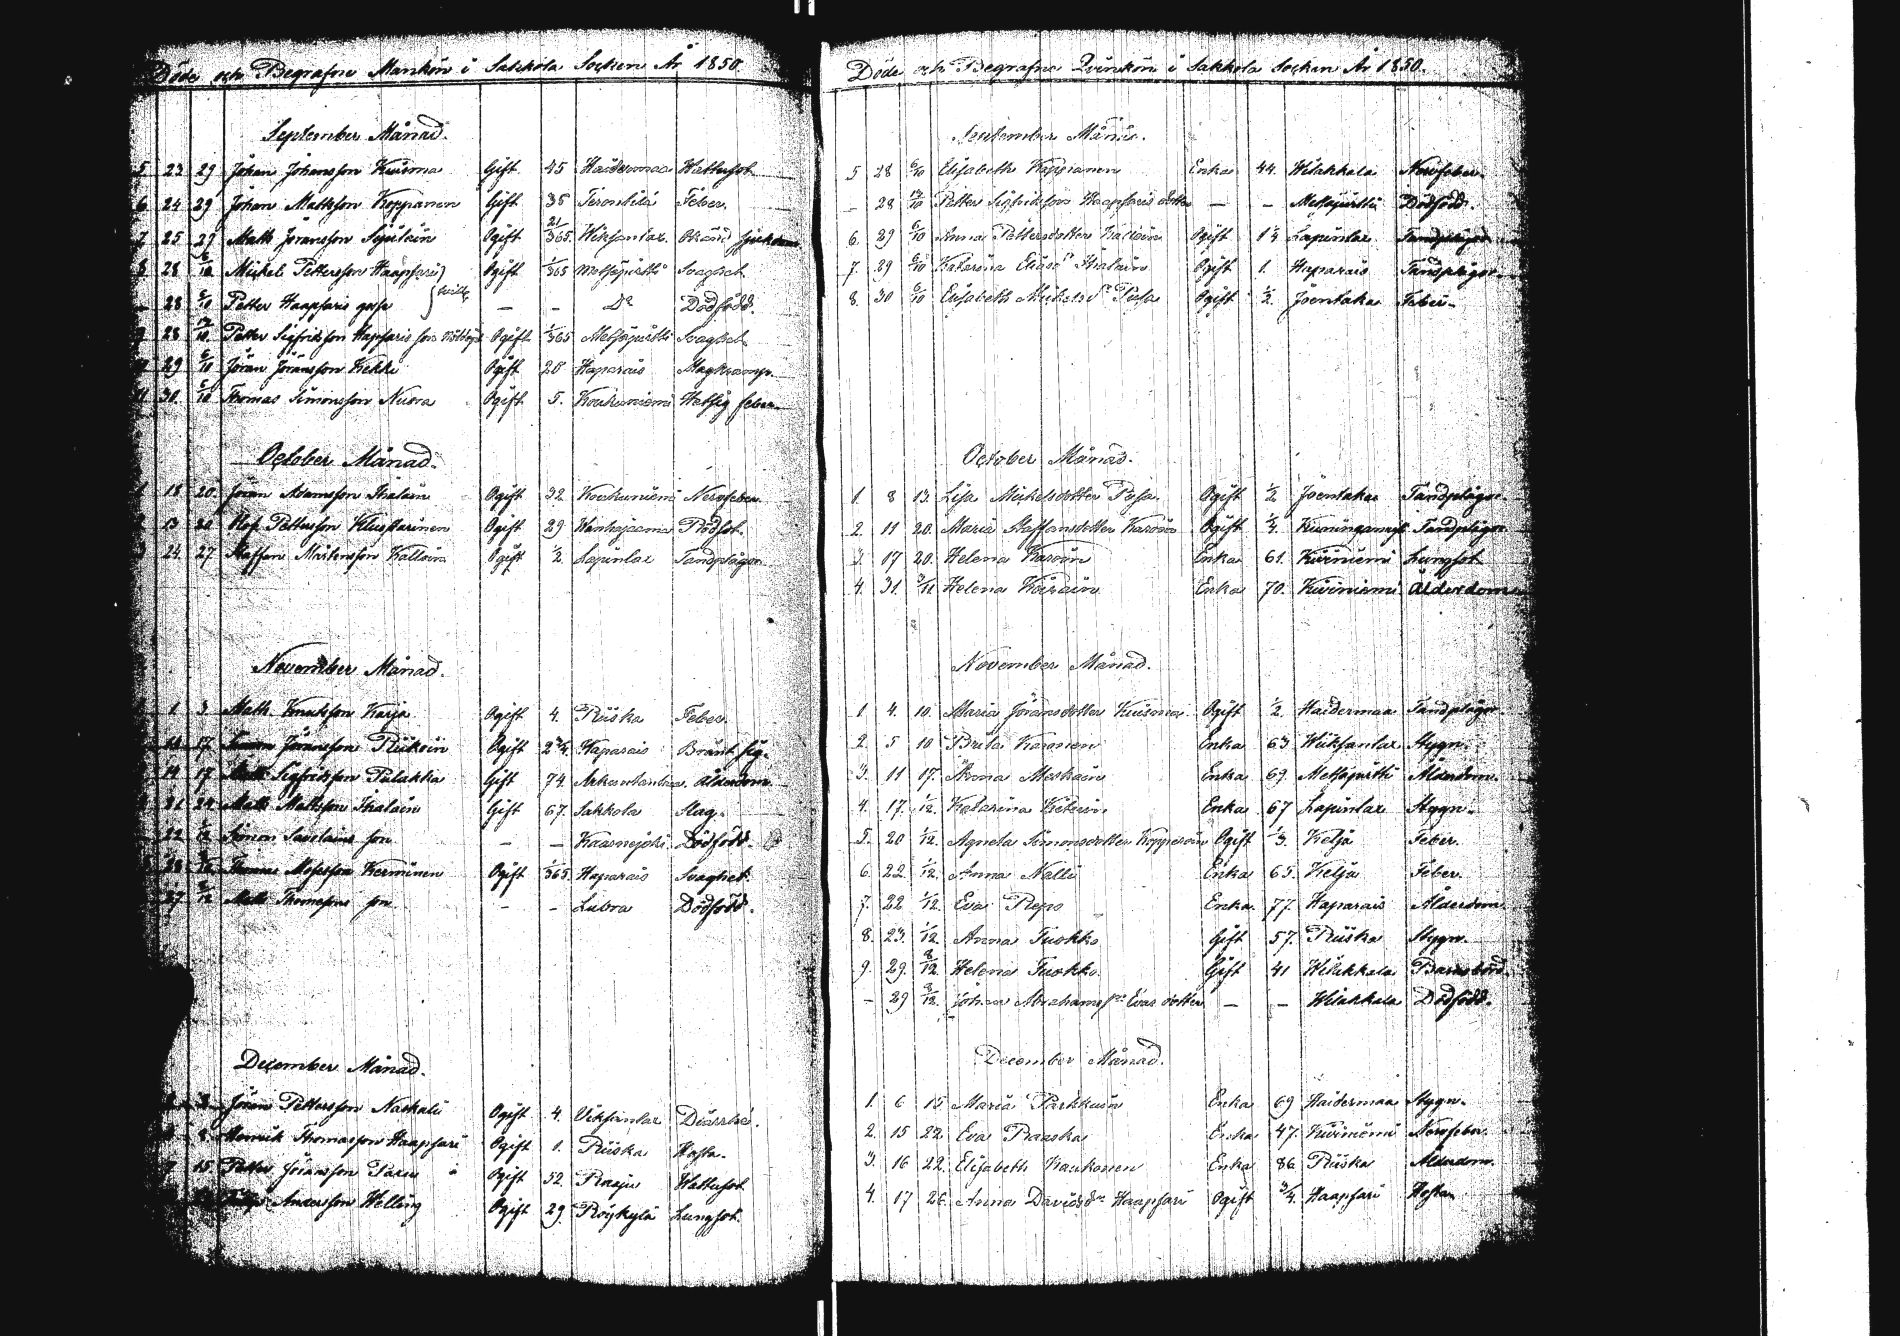 Döde och Begrafne Mankön i Sakkola Socken År 1850.
September Månad.
5 23 29 Johan Johansson Kuisma Gift 45 Haidermaa Wattusot
6 24 29 Johan Mattsson Koppanen Gift 35 Feber.
7 25 29 Matts Jöransson Ogift 21/365 Wiksantlax Okänd sjukdom
8 28 6/10 Michel Pettersson Haapsari Ogift 1/365 Metsäpirtti Svaghet
– 28 6/10 Petter Haapsaris gosse – – Do Dödfödd.
9 28 13/10 Petter Sigfridsson Haapsaris son Ogift 1/365 Metsäpirtti Svaghet
29 6/10 Jöran Jöransson Kekki Ogift 28 Haparais Magkramp.
30 6/10 Thomas Simonsson Nuora Ogift 5. Koukuniemi Hetsig feber.
October Månad.
1 18 20 Jöran Adamsson Ihalain Ogift 32 Koukuniemi Nervfeber.
20 Pettersson Ogift 29 Wanhajaama Rödsot.
3 24. 27 Staffan Mårtensson Kalloin Ogift 1/2 Lapinlax Tandplågor
November Månad.
1 3 Matts Knutsson Karja Ogift 4. Riiska Feber.
17 Simon Jöransson Riikoin Ogift 2 3/4 Haparais Bränt sig.
17 Matts Sigfridsson Pulakka Gift 74. Ålderdom
21 Matts Mattsson Ihalain Gift 67. Sakkola Slag.
22 1/12 Simon Savolains son – – Kaarnajoki Dödfödd.
28 Thomas Mosesson Kerminen Ogift 1/365 Haparais Svaghet.
27 Matts son – – Lubra Dödfödd.
December Månad.
Jöran Pettersson Naskali Ogift 4. Wiksantlax Diarrhé.
Henrik Thomasson Haapsari Ogift 1. Riiska Hosta.
15 Petter Jöransson Ogift 52 Raaju Wattusot
Andersson Helling Ogift 29. Röykylä Lungsot.
Döde och Begrafna Qvinkön i Sakkola Socken År 1850.
September Månad.
5 28 6/10 Elisabeth Koppanen Enka 44. Wilakkala Nervfeber.
– 28 13/10 Petter Sigfridssons Haapsaris dotter – – Metsäpirtti Dödfödd.
6. 29 6/10 Anna Pettersdotter Kalloin Ogift 1 1/4 Lapinlax Tandplågor
7. 29 6/10 Katarina Eliasdr Ihalain Ogift 1. Haparais Tandplågor
8. 30 6/10 Elisabeth Mickelsdr Posa Ogift 1/2. Joentaka Feber.
October Månad.
1. 8 13. Lisa Mickelsdotter Posa Ogift 1/2 Joentaka Tandplågor
2. 11 20. Maria Staffansdotter Karvoin Ogift 1/4. Tandplågor
3. 17 20. Helena Karvoin Enka 61. Kiviniemi Lungsot
4. 31. 3/11 Helena Koirain Enka 70. Kiviniemi Ålderdom
November Månad.
1 4. 10. Maria Jöransdotter Kuisma Ogift 1/2. Haidermaa Tandplågor
2. 5 10 Brita Karonen Enka 63 Wiiksanlax Stygn.
3. 11 17. Anna Meskain Enka 69. Metsäpirtti Ålderdom.
4. 17. 1/12. Katarina Kiberin Enka 67 Lapinlax Stygn.
5. 20 1/12. Agneta Simonsdotter Kopperoin Ogift 1/3. Kelja Feber.
6. 22. 1/12. Anna Nalli Enka 65. Kelja Feber.
7. 22 1/12. Eva Repo Enka 77. Haparais Ålderdom.
8. 23. 1/12. Anna Tuokko Gift 57. Riiska Stygn.
9. 29. 8/12. Helena Tuokko Gift 41 Wilakkala Barnsbörd.
– 29 8/12. Johan Abrahamsns Evas dotter – – Wilakkala Dödfödd.
December Månad.
1. 6 15 Maria Parkkuin Enka 69 Haidermaa Stygn.
2. 15 22. Eva Raaska Enka 47. Kiviniemi Nervfeber.
3. 16 22. Elisabeth Kaukonen Enka 86. Riiska Ålderdom.
4. 17 26. Anna Davidsdr Haapsari Ogift 3/4. Haapsari Hosta